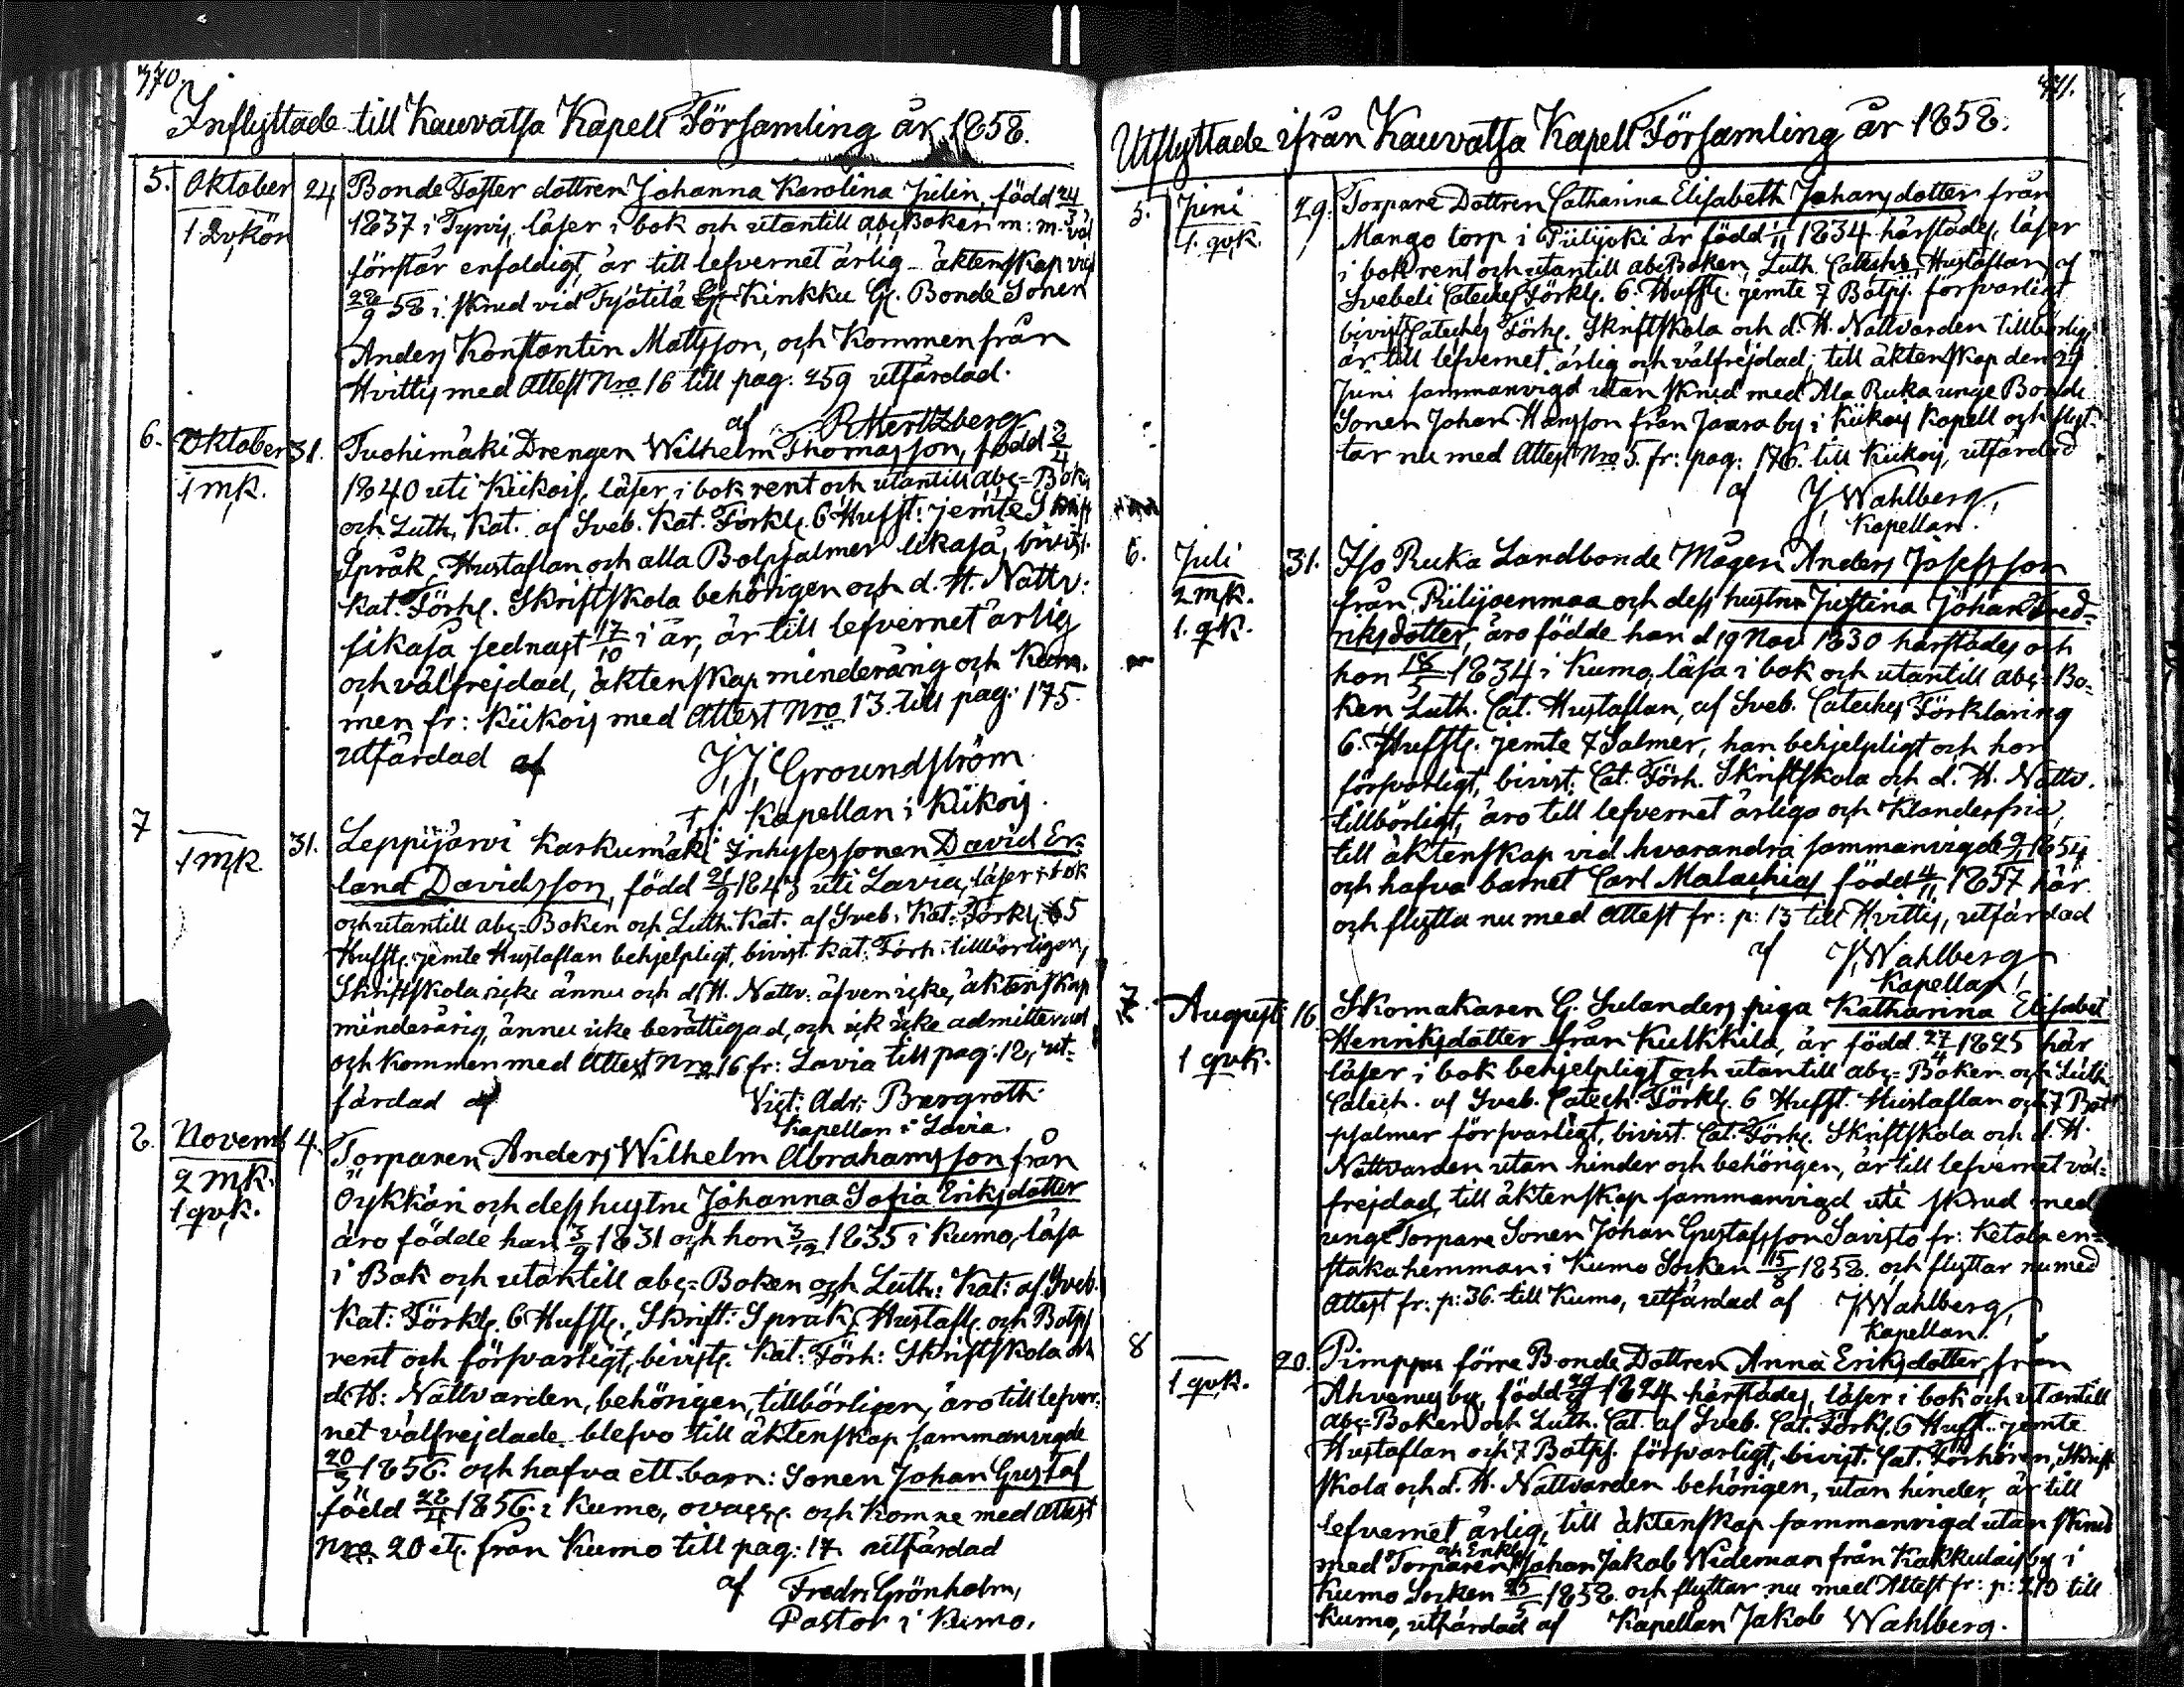 370.
Inflyttade till Kauvatsa Kapell Församling år 1858.
5. Oktober 24 Bonde Foster dottren Johanna Karolina Julin, född 24/3
1 qvkön 1837 i Tyrvis, läser i bok och utantill abc Boken m: m. väl
förstår enfaldigt, är till lefvernet ärlig äktenskap vigd
58 i skrud vid Kinkku Bonde Sonen
Anders Konstantin Mattsson, och Kommen från
Hvittis med Attest Nro 16 till pag: 259 utfärdad
af R Hertzberg
6. Oktober 31. Tuohimäki Drengen Wilhelm Thomasson, född
1 mk. 1840 uti Kiikois, läser i bok rent och utantill abc-Bok
och Luth. Kat. af Sveb. Kat. Förkl. 6 Hufst: jemte
Språk, Hustaflan och alla Botpsalmer likaså, bivist.
Kat. Förh. Skriftskola behörigen och d. H. Nattv:
likaså sednast 17/10 i år, är till lefvernet ärlig
och välfrejdad, äktenskap minderårig och Kom-
men fr: Kiikois med Attest Nro 13. till pag: 175.
utfärdad af J. J. Groundström
Kapellan i Kiikois.
7 1 mk. 31. Leppijärvi Karkumäki Inhyses sonen David Er-
land Davidsson, född 1843 uti Lavia, läser i bok
och utantill abc-Boken och Luth. Kat: af Sveb. Kat: Förkl. 5
Hufst. jemte Hustaflan behjelpligt, bivist. Kat. Förh: tillbörligen,
Skriftskola icke ännu och d. H. Nattv: äfven icke, äktenskap
minderårig, ännu icke berättigad, och icke admitterad
och kommen med Attest Nro 16 fr: Lavia till pag: 12, ut-
färdad af Vict: Adr: Bergroth
Kapellan i Lavia.
8. Novemb 4. Torparen Anders Wilhelm Abrahamsson från
2 mk. Öykkäri och dess hustru Johanna Sofia Eriksdotter
1 qvk. äro födde han 3/9 1831 och hon 3/12 1835 i Kumo, läsa
i Bok och utantill abc-Boken och Luth: Kat: af Sveb.
Kat: Förkl. 6 Hufst., Skrift: Språk, Hustafl. och Botps
rent och försvarligt, bivist. Kat: Förh: Skriftskola och
d. H: Nattvarden, behörigen, tillbörligen, äro till lefver-
net välfrejdade blefvo till äktenskap sammanvigde
1856. och hafva ett barn: Sonen Johan Gustaf
född 1856. i Kumo, ovacc. och Komne med Attest
Nro. 20 etc. från Kumo till pag: 17 utfärdad
af Fredr: Grönholm,
Pastor i Kumo.
371.
Utflyttade ifrån Kauvatsa Kapell Församling år 1858.
5. Juni 29. Torpare Dottren Catharina Elisabeth Johansdotter från
1. qvk. Mango torp i Piilijoki är född 1834 härstädes, läser
i bok rent och utantill abc Boken, Luth. Catech. Hustaflan, af
Svebeli Cateches Förkl. 6. Hufst. jemte 7 Botps. försvarligt
bivist Cateches Förh. Skriftskola och d. H. Nattvarden tillbörlig.
är till lefvernet ärlig och välfrejdad, till äktenskap den 24
Juni sammanvigd utan skrud med Ala Ruka unge Bonde
Sonen Johan Hansson från Jaara by i Kiikois Kapell och flyt-
tar nu med Attest Nro 5. fr: pag: 176. till Kiikois, utfärdad
af J. Wahlberg,
Kapellan.
6. Juli 31. Iso Ruka Landbonde Mågen Anders Josefsson
2 mk. från Piilijoenmaa och dess hustru Justina Johan Fred-
1. qk. riksdotter, äro födde han d 19 Nov 1830 härstädes och
hon 18/5 1834 i Kumo, läsa i bok och utantill abc-Bo-
ken Luth. Cat. Hustaflan, af Sveb. Cateches Förklaring
6. Hufst. jemte 7 Salmer, han behjelpligt och hon
försvarligt, bivist. Cat. Förh. Skriftskola och d. H. Nattv.
tillbörligt, äro till lefvernet ärliga och klanderfria,
till äktenskap vid hvarandra sammanvigde 1854
och hafva barnet Carl Malachias född 4/11 1857 här
och flytta nu med Attest fr: p: 13 till Hvittis, utfärdad
af J, Wahlberg
Kapellan,
7. Augusti 16. Skomakaren G. Sulanders piga Katharina Elisabet
1 qvk. Henriksdotter från Kulkkila, är född 27/4 1825 här
läser i bok behjelpligt och utantill abc-Boken och Luth
Catech. af Sveb. Catech. Förkl. 6 Hufst. Hustaflan och 7 Bot
psalmer försvarligt, bivist. Cat. Förh. Skriftskola och d. H.
Nattvarden utan hinder och behörigen, är till lefvernet väl-
frejdad, till äktenskap sammanvigd uti skrud med
unge Torpare Sonen Johan Gustafsson Savisto fr: Ketola en-
staka hemman i Kumo Socken 15/8 1858. och flyttar nu med
Attest fr: p: 36. till Kumo, utfärdad af J Wahlberg,
Kapellan.
8 1 qvk. 20. Pimppu förre Bonde Dottren Anna Eriksdotter, från
Ahvenus by, född 1824 härstädes, läser i bok och utantill
abc-Boken och Luth. Cat. af Sveb. Cat. Förkl. 6 Hufst. jemte
Hustaflan och 7 Botps. försvarligt, bivist. Cat. Förhören, Skrift
skola och d. H. Nattvarden behörigen, utan hinder, är till
Lefvernet ärlig, till äktenskap sammanvigd utan skrud
med Torparen och Enkl. Johan Jakob Wideman från Kakkulais by i
Kumo Socken 1858. och flyttar nu med Attest fr: p: 210 till
Kumo, utfärdad af Kapellan Jakob Wahlberg.